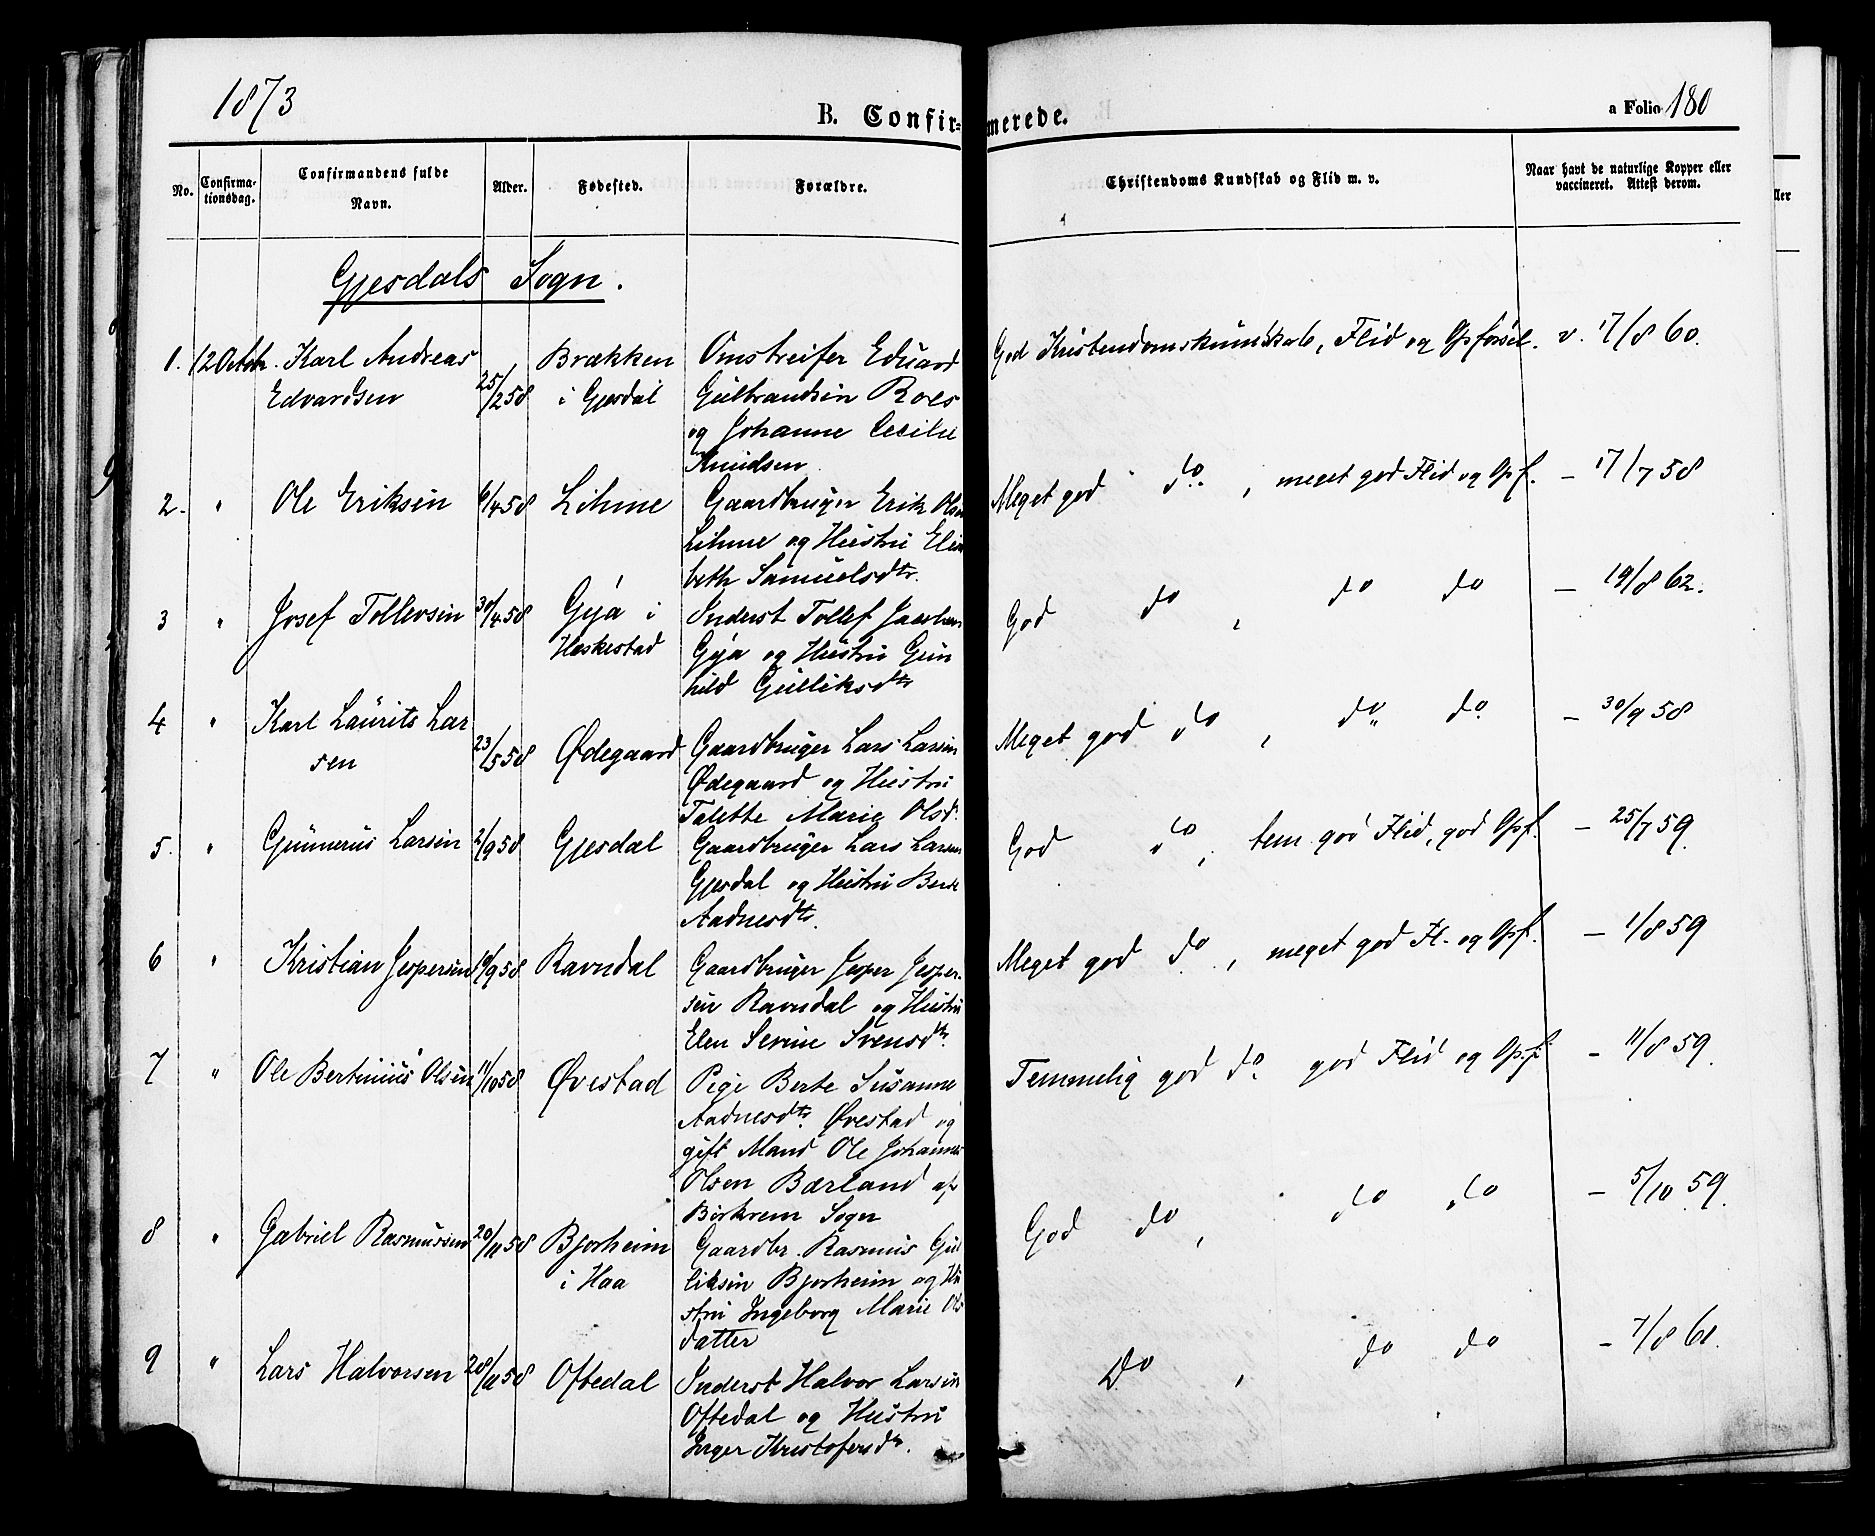 1873
B. Confirmerede.
a Folio 180
No.
Confirmationsdag.
Confirmandens fulde Navn.
Alder.
Fødested.
Forældre.
Christendoms Kundskab og Flid m. v.
Naar havt de naturlige Kopper eller vaccineret. Attest derom.
ller
Gjesdals Sogn.
1. 12 Octbr. Karl Andreas Brækken Omstreifer Edvard God Kristendomskundskab, Flid og Opførsel. v. 17/8 60.
Edvardsen 25/2 58 i Gjesdal Gulbrandsen Roes
og Johanne Cecilie
Knudsen
2. " Ole Eriksen 6/4 58 Lihme Gaardbruger Erik Olsen Meget god do. , meget god Flid og Opf. – 17/7 58
Lihme og Hustru Elisa
beth Samuelsdtr.
3 " Josef Tollevsen 30/4 58 Gya i Inderst Tollef Jacobsen God do , do do – 19/8 62.
Heskestad Gya og Hustru Gun
hild Gulliksdtr
4 " Karl Laurits Lar
sen 23/5 58 Ødegaard Gaardbruger Lars Larsen Meget god do , do do – 30/9 58
Ødegaard og Hustru
Talette Marie Olsd.
5. " Gunnerus Larsen 2/9 58 Gjesdal Gaardbruger Lars Larsen God do , tem. god Flid, god Opf. – 25/7 59.
Gjesdal og Hustru
Aadnesdtr.
6 " Kristian Jespersen 19/9 58 Ravndal Gaardbruger Jesper Jesper- Meget god do , meget god Fl. og Opf. – 1/8 59
sen Ravndal og Hustru
Elen Serine Svensdtr.
7 " Ole Bertinius Olsen 11/10 58 Øvestad Pige Berte Susanne Temmelig god do. god Flid og Opf. – 11/8 59.
Aadnesdtr. Øvestad og
gift Mand Ole Johannes
Olsen Bærland af
Birkrem Sogn
8 " Gabriel Rasmussen 20/11 58 Bjorheim Gaardbr. Rasmus Gul God do , do do – 5/10 59.
i Haa liksen Bjorheim og Hu
stru Ingeborg Marie Ols
datter
9 " Lars Halvorsen 28/11 58 Oftedal Inderst Halvor Larsen Do , do do – 7/8 61.
Oftedal og Hustru
Inger Kristofersdtr.